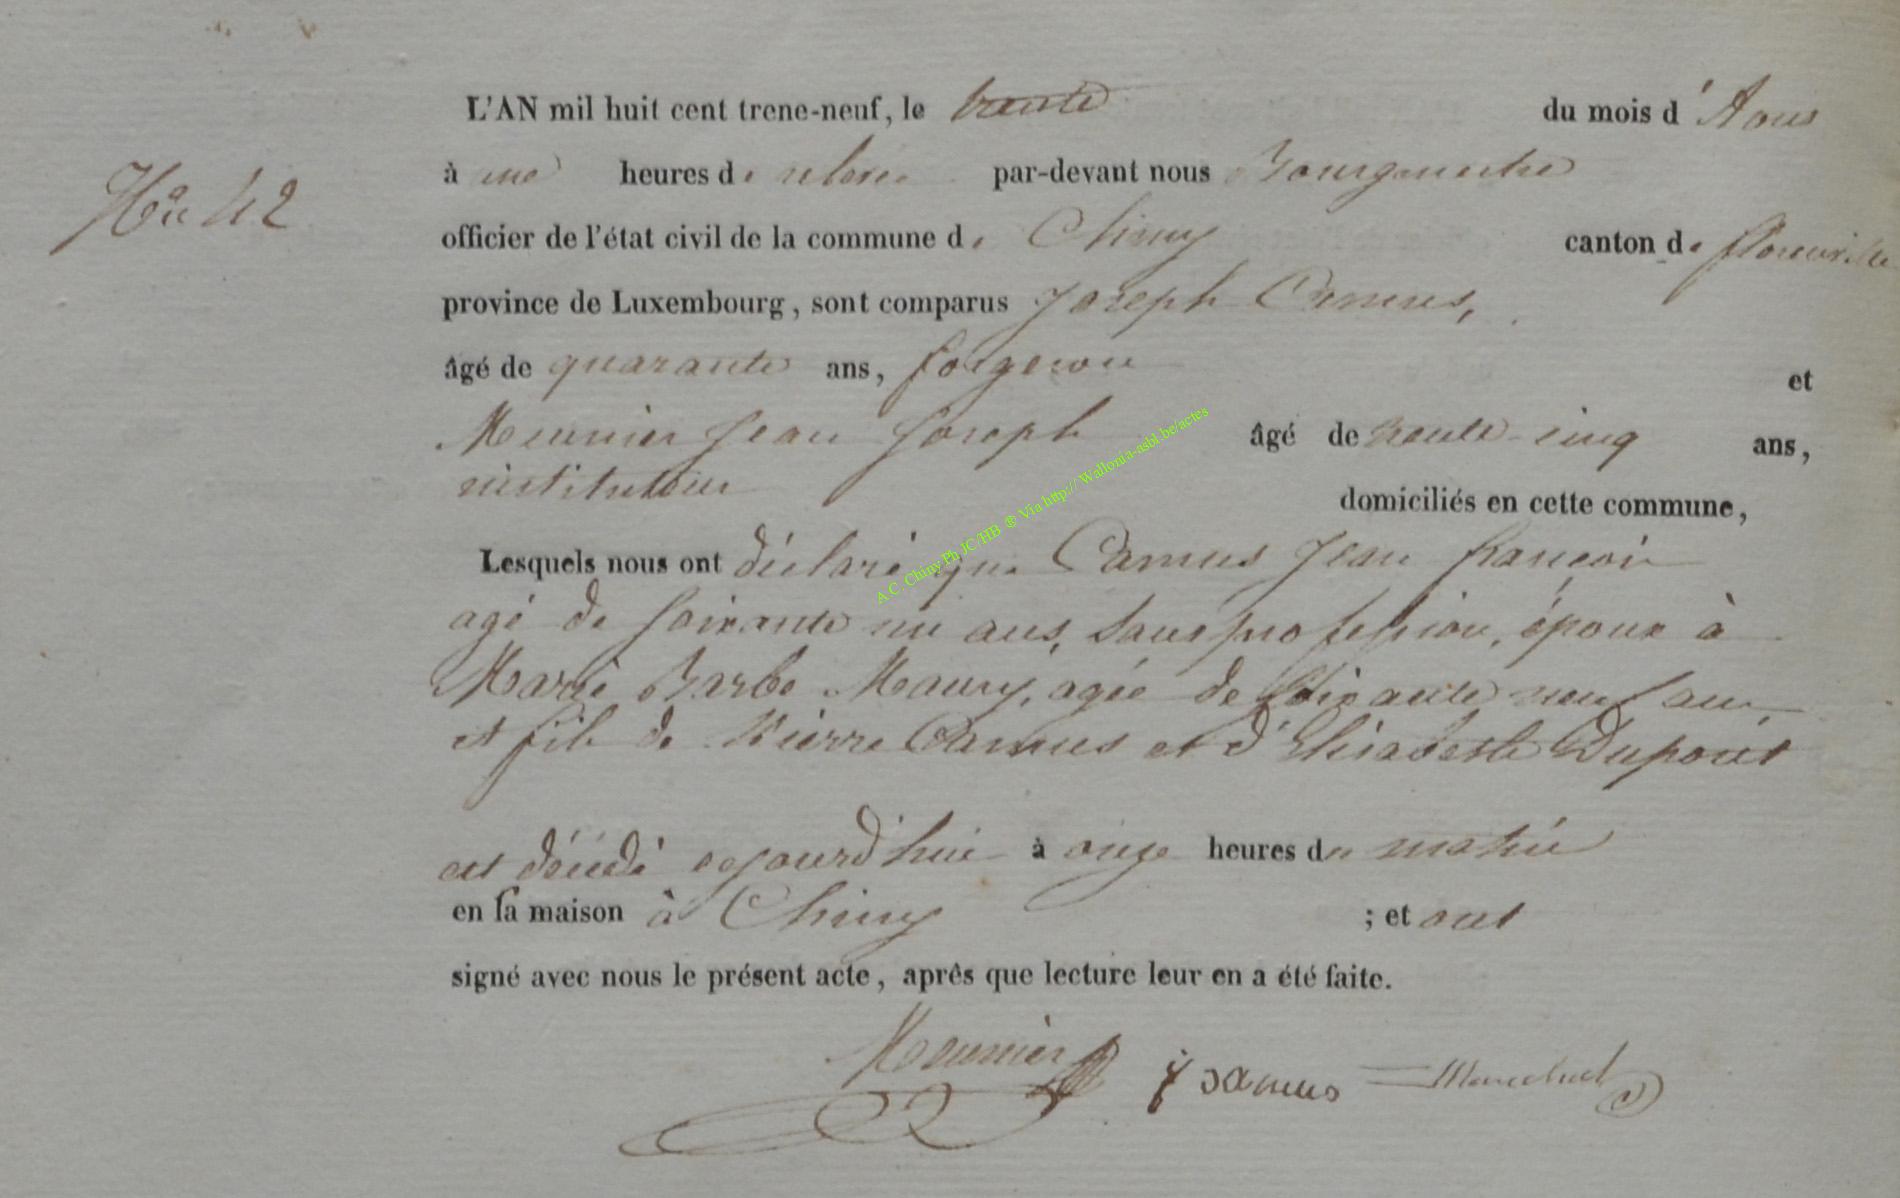 L'AN mil huit cent trene-neuf, le trente du mois d'Aous
à une heures de relevée par-devant nous Bourgmestre
N° 42
officier de l'état civil de la commune de Chiny canton de florenville
province de Luxembourg, sont comparus Joseph Camus,
âgé de quarante ans, forgeron et
Meunier Jean Joseph âgé de trente-cinq ans,
instituteur
domiciliés en cette commune,
Lesquels nous ont déclaré que Camus Jean françois
agé de soixante un ans, sans profession, époux à
Marie Barbe Maury, agée de soixante neuf ans,
et fils de Pierre Camus et d'Elisabeth Dupont
est décédé aujourd'hui à onze heures du matin
en sa maison à Chiny ; et ont
signé avec nous le présent acte, après que lecture leur en a été faite.
Meunier J Camus Marechal
A.C. Chiny Ph JC/HB ® Via http:// Wallonia-asbl.be/actes